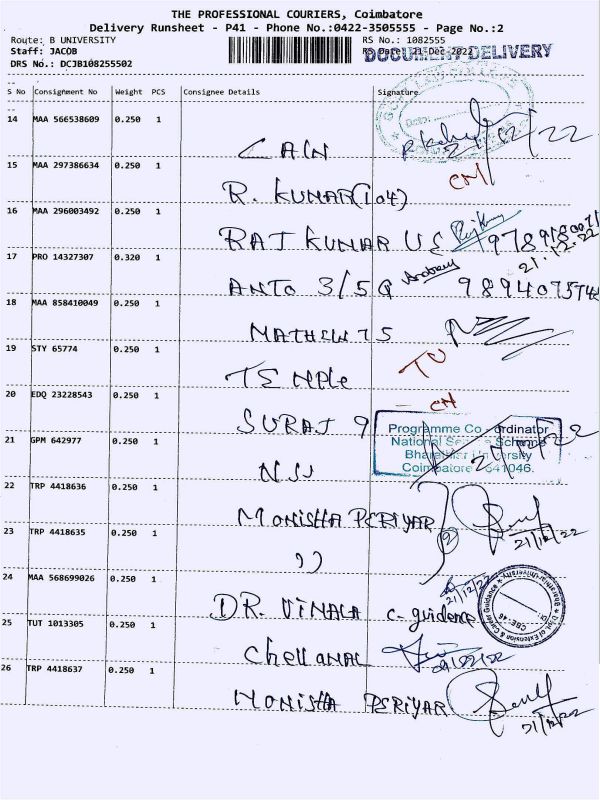 THE PROFESSIONAL COURIERS, Coimbatore
Delivery Runsheet - P41 - Phone No.:0422-3505555 - Page No.:2
Route: B UNIVERSITY
RS No.: 1082555
Staff: JACOB
RS Date :21-Dec-2022
DOCUMENT DELIVERY
DRS No.: DCJB108255502
S No Consignment No Weight PCS Consignee Details Signature
14 MAA 566538609 0.250 1
CAIN 21/12/22
15 MAA 297386634 0.250 1
R. KUMAR (104)
16 MAA 296003492 0.250 1
RAJ KUMAR US
21.12.22
17 PRO 14327307 0.320 1
ANTO 3/5Q
18 MAA 858410049 0.250 1
MATHEW 75
19 STY 65774 0.250 1
TEMPLE
20 EDQ 23228543 0.250 1
SURAJ 9
Programme Co-ordinator
National Service Scheme
Bharathiar University
Coimbatore - 641046.
21 GPM 642977 0.250 1
22 TRP 4418636 0.250 1
MONISHA PERIYAR
21/12/22
23 TRP 4418635 0.250 1
24 MAA 568699026 0.250 1
21/12/22
DR. VIMALA C-guidence
Dept. of Extension & Career Guidance
25 TUT 1013305 0.250 1
26 TRP 4418637 0.250 1
MONISHA PERIYAR
21/12/22